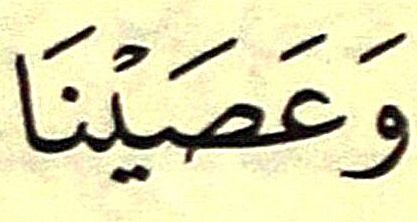 وَعَصَيْنَا